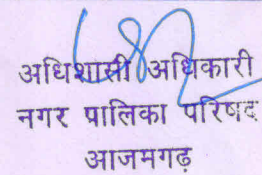 अधिशासी अधिकारी
नगर पालिका परिषद
आजमगढ़